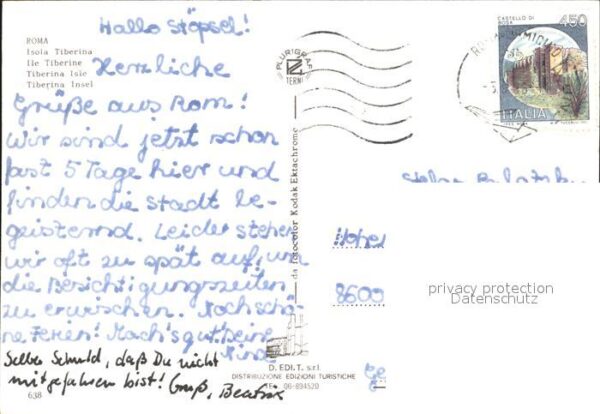 Hallo Stöpsel!
ROMA
Isola Tiberina
Ile Tiberine
Tiberina Isle
Tiberina Insel
Herzliche
Grüße aus Rom!
Wir sind jetzt schon
fast 5 Tage hier und
finden die Stadt be-
geisternd. Leider stehen
wir oft zu spät auf, um
die Besichtigungszeiten
zu erwischen. Noch schö-
ne Ferien! Mach's gut,
Selber Schuld, daß Du nicht
mitgefahren bist! Gruß, Beatrix
638
PLURIGRAF
TERNI
da fotocolor Kodak Ektachrome
D. EDI.T. s.r.l.
DISTRIBUZIONE EDIZIONI TURISTICHE
06-894520
CASTELLO DI
450
ITALIA
8600
privacy protection
Datenschutz